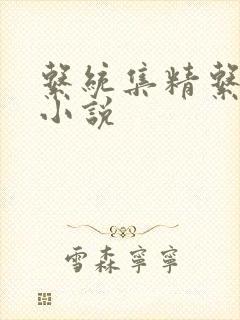 繫統集精繫
小說
雪森寧寧